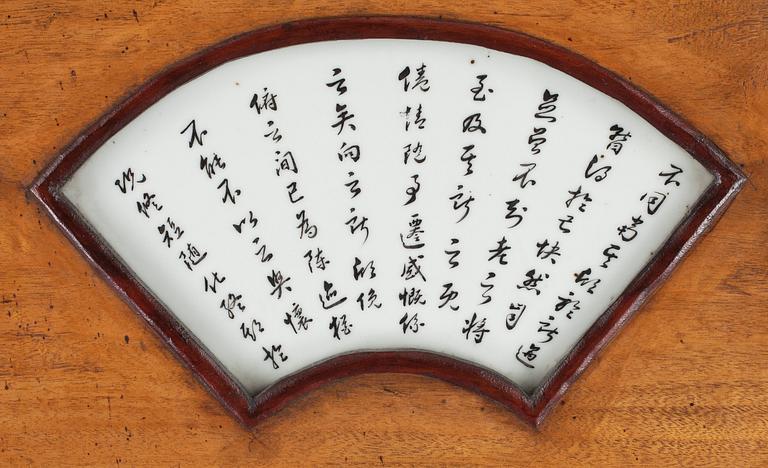 不同當其欣於所遇
暫得於己快然自
足曾不知老之將
至及其所之既
倦情隨事遷感慨係
之矣向之所欣俛
俯之間已為陳迹猶
不能不以之興懷
況修短隨化終期於